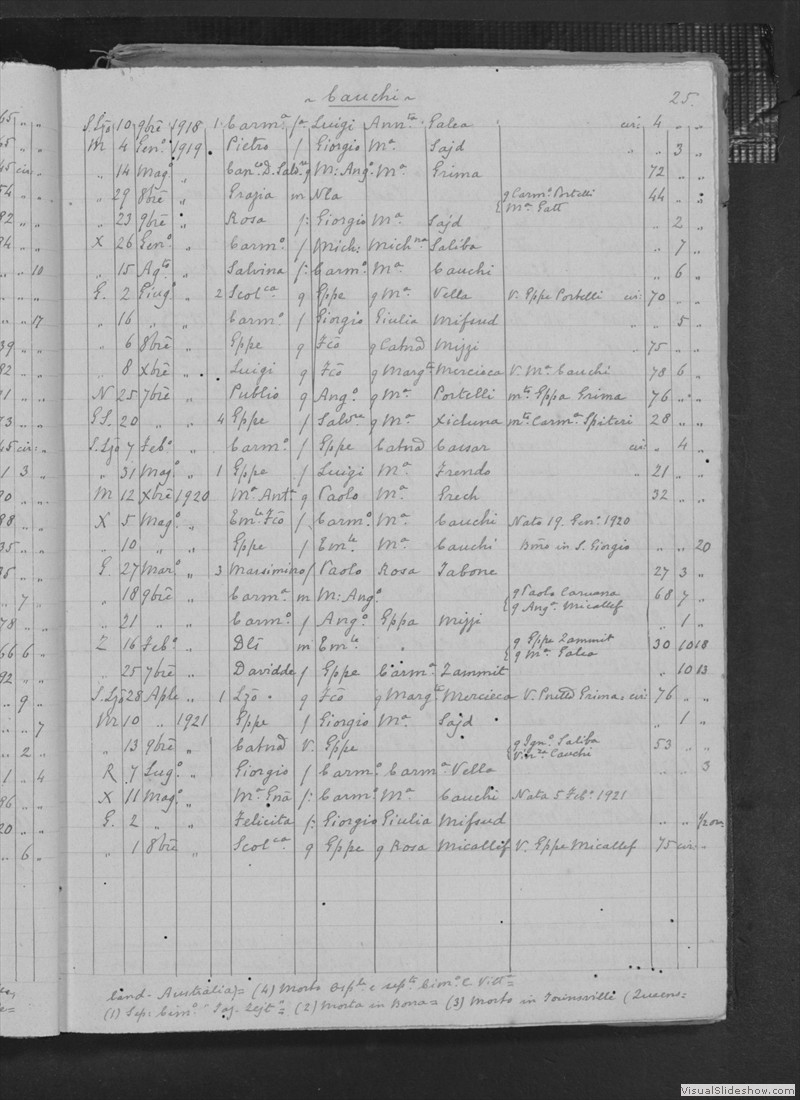 ~ Cauchi ~ 25.
S. Ljo 10 9bre 1918 1 Carm.a f.a Luigi Ann.ta Galea cir: 4 „ „
M 4 Gen.o 1919 Pietro f Giorgio M.a Sajd „ „ 3 „
„ 14 Mag.o „ Can.co D. Salv.re g M: Ang.o M.a Grima 72 „ „
„ 29 8bre „ Grazia m Nla { g Carm.o Portelli 44 „ „
g M.a Gatt
„ 23 9bre „ Rosa f: Giorgio M.a Sajd „ 2 „
X 26 Gen.o „ Carm.o f Mich: Mich.na Saliba „ 7 „
„ 15 Ag.to „ Salvina f: Carm.o M.a Cauchi „ 6 „
G. 2 Giug.o „ 2 Scol.ca g Gppe g M.a Vella V. Gppe Portelli cir: 70 „ „
„ 16 „ „ Carm.o f Giorgio Giulia Mifsud „ 5 „
„ 6 8bre „ Gppe g Fco g Catna Mizzi 75 „ „
„ 8 xbre „ Luigi g Fco g Marg.ta Mercieca V. M.a Cauchi 78 6 „
N 25 7bre „ Publio g Ang.o g M.a Portelli m.to Gppa Grima 76 „ „
GS. 20 „ „ 4 Gppe f Salv.re g M.a Xicluna m.to Carm.a Spiteri 28 „ „
S. Ljo 7 Feb.o „ Carm.o f Gppe Catna Caesar cir: „ 4 „
„ 31 Mag.o „ 1 Gppe f Luigi M.a Frendo „ 21 „ „
M 12 Xbre 1920 M.a Ant.a g Paolo M.a Grech 32 „ „
X 5 Mag.o „ Em.le Fco f Carm.o M.a Cauchi Nato 19. Gen.o 1920
„ 10 „ „ Gppe f Em.le M.a Cauchi in S. Giorgio „ „ 20
G. 27 Mar.o „ 3 Massimino f Paolo Rosa Tabone 27 3 „
„ 18 9bre „ Carm.a m M: Ang.o { g Paolo Caruana 68 7 „
g Ang.a Micallef
„ 21 „ „ Carm.o f Ang.o Gppa Mizzi „ 1 „
Z 16 Feb.o „ m Em.le „ { g Gppe Zammit 30 10 18
g M.a Galea
„ 25 7bre „ Davidde f Gppe Carm.a Zammit „ 10 13
S. Ljo 28 Aple „ 1 Ljo g Fco g Marg.ta Mercieca V. Grima cir: 76 „ „
M 10 „ 1921 Gppe f Giorgio M.a Sajd „ 1 „
„ 13 9bre „ Catna V. Gppe { g Ign.o Saliba 53 „ „
Cauchi
R 7 Lug.o „ Giorgio f Carm.o Carm.a Vella „ „ 3
X 11 Mag.o „ M.a f: Carm.o M.a Cauchi Nata 5 Feb.o 1921
G. 2 „ „ Felicita f: Giorgio Giulia Mifsud „ „
„ 1 8bre „ Scol.ca g Gppe g Rosa Micallef V. Gppe Micallef 75 cir: „
land. Australia)= (4) Morto e sep.to Cim.o C. Vitt.a=
(1) Sep: Cim.o = (2) Morta in Bona= (3) Morto in Touinsville (Queens=
VisualSlideshow.com